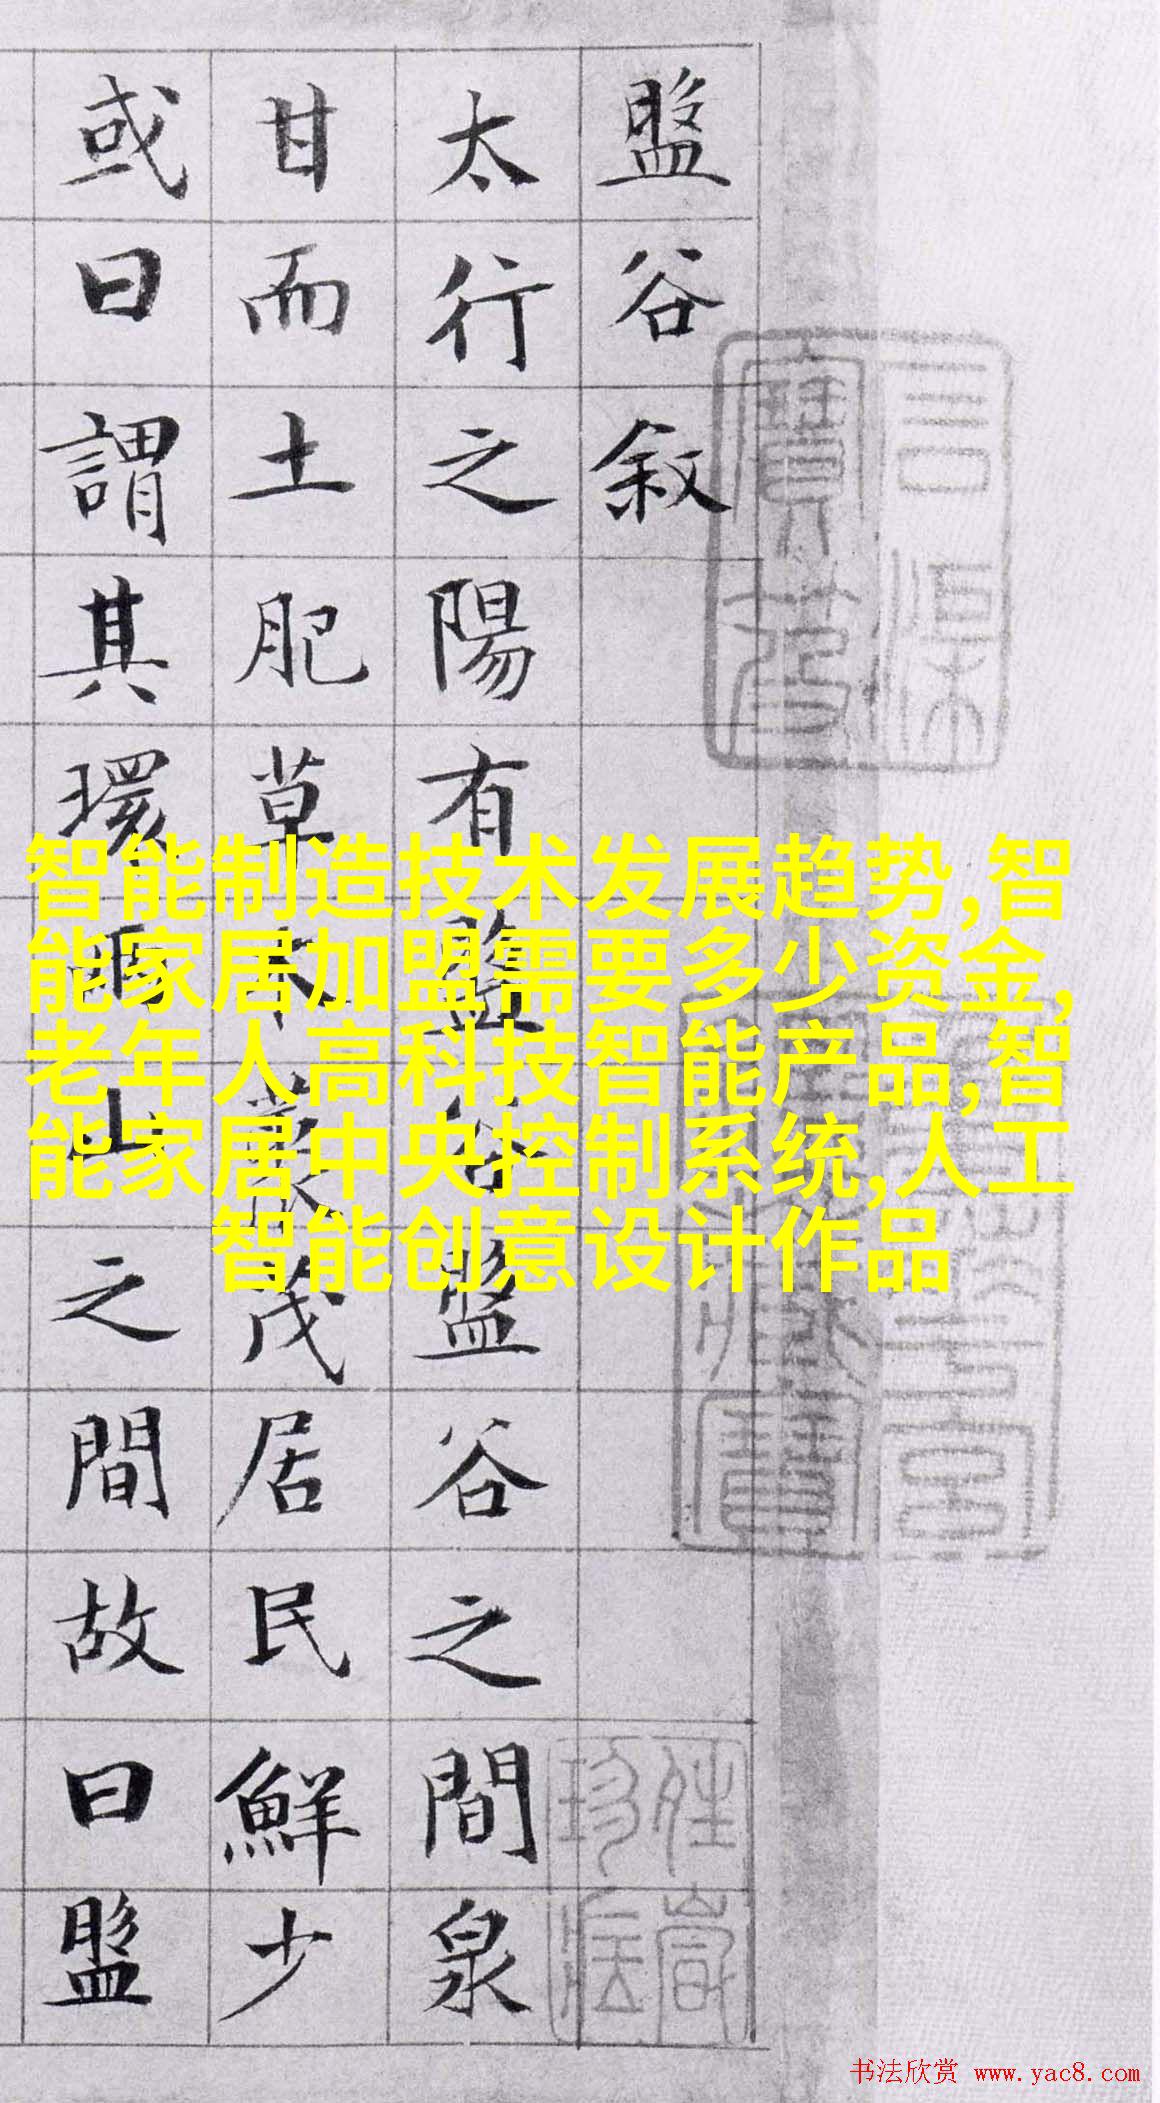 盤谷敘
太行之陽有盤谷盤谷之間泉
甘而土肥草木叢茂居民鮮少
或曰謂其環兩山之間故曰盤
智能制造技术发展趋势,智
能家居加盟需要多少资金,
老年人高科技智能产品,智
能家居中央控制系统,人工
智能创意设计作品
书法欣赏 www.yac8.com